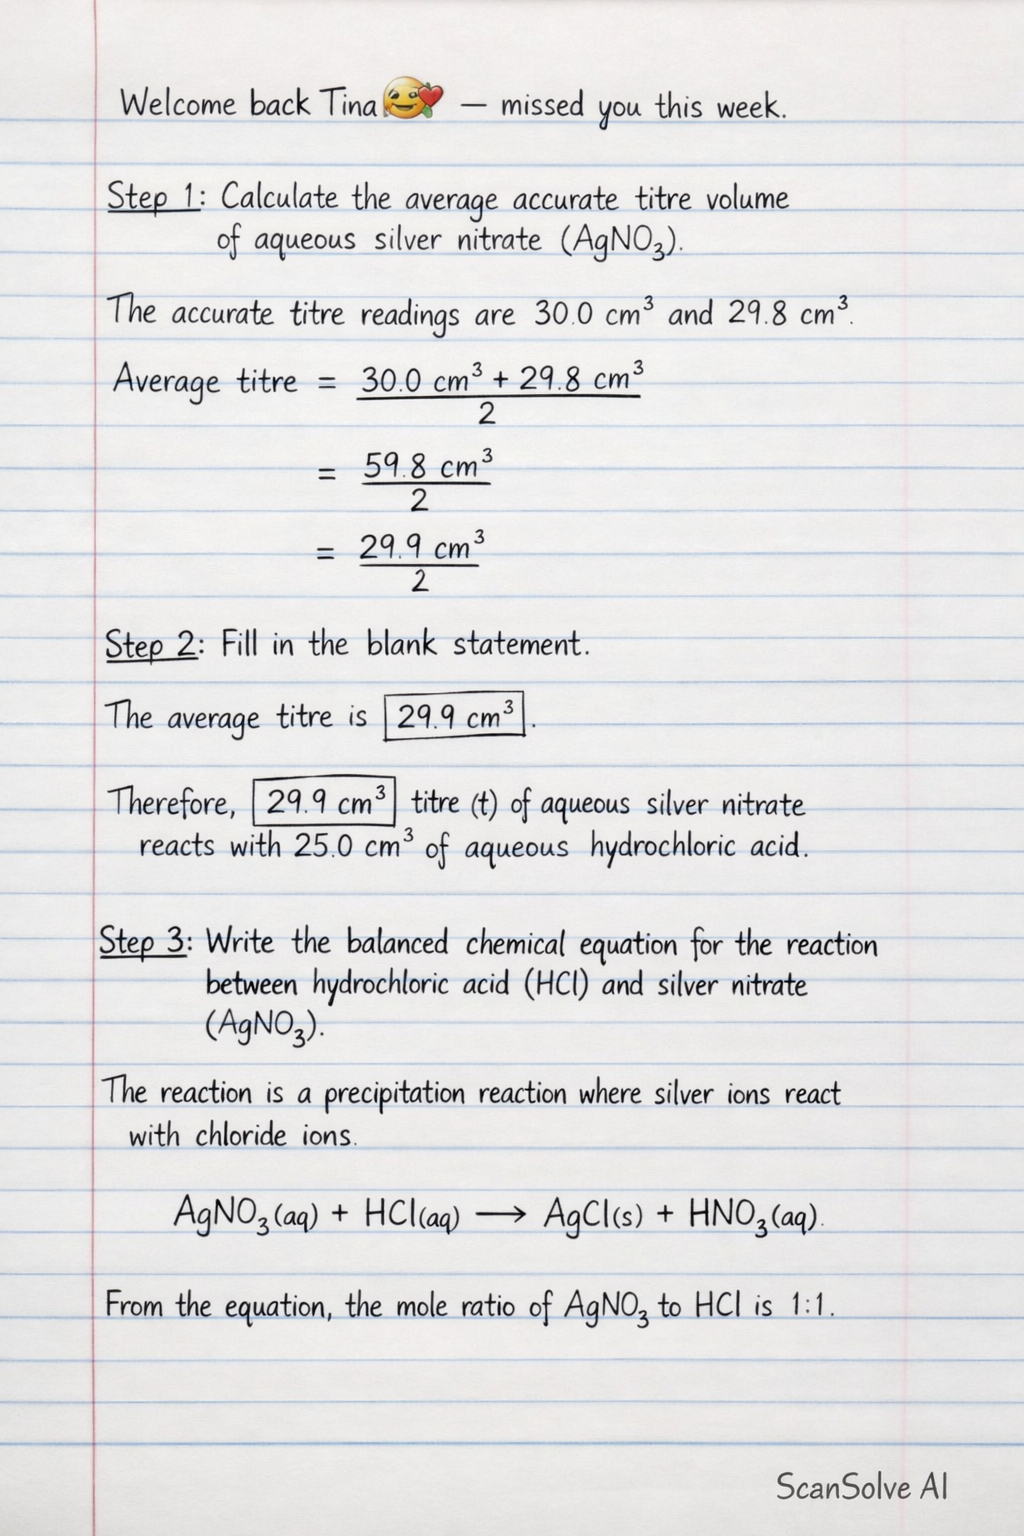 Welcome back Tina🥰 — missed you this week.
Step 1: Calculate the average accurate titre volume
of aqueous silver nitrate (AgNO₃).
The accurate titre readings are 30.0 cm³ and 29.8 cm³.
Average titre = 30.0 cm³ + 29.8 cm³
2
= 59.8 cm³
2
= 29.9 cm³
2
Step 2: Fill in the blank statement.
The average titre is 29.9 cm³.
Therefore, 29.9 cm³ titre (t) of aqueous silver nitrate
reacts with 25.0 cm³ of aqueous hydrochloric acid.
Step 3: Write the balanced chemical equation for the reaction
between hydrochloric acid (HCl) and silver nitrate
(AgNO₃).
The reaction is a precipitation reaction where silver ions react
with chloride ions.
AgNO₃(aq) + HCl(aq) ⟶ AgCl(s) + HNO₃(aq).
From the equation, the mole ratio of AgNO₃ to HCl is 1:1.
ScanSolve AI